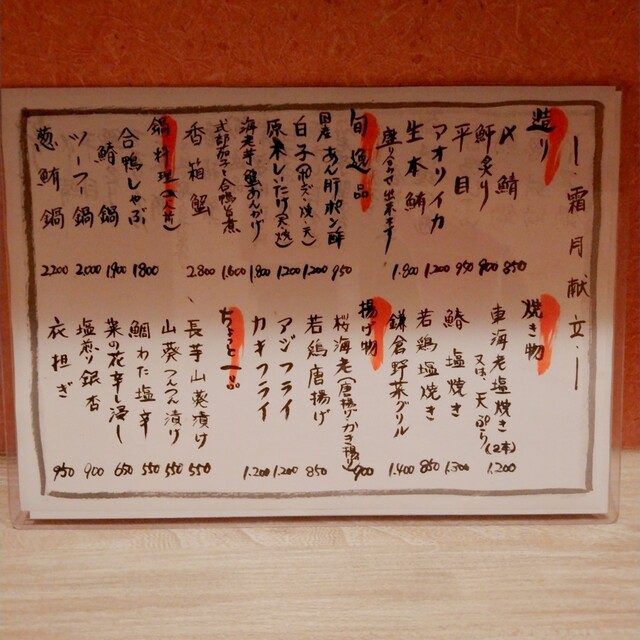 霜月献立
造り
〆鯖 850
鰤炙り 900
平目 950
アオリイカ 1.200
生本鮪 1.800
盛り合わせ出来ます
旬逸品
国産あん肝ポン酢 950
白子(ポン酢・焼・天) 1.200
原木しいたけ(天・焼) 1.200
海老芋蟹あんかけ 1.800
香箱蟹 2.800
鍋料理(一人前)
合鴨しゃぶ 1.800
鰆鍋 1.900
ツーフー鍋 2.000
葱鮪鍋 2200
焼き物
車海老塩焼き(2本)
又は、天ぷら 1.200
鰆塩焼き 1.300
若鶏塩焼き 850
鎌倉野菜グリル 1.400
揚げ物
桜海老(唐揚げ・かき揚) 900
若鶏唐揚げ 850
アジフライ 1.200
カキフライ 1.200
ちょっと一品
長芋山葵漬け 550
山葵つんつん漬け 550
鯛わた塩辛 550
菜の花辛し浸し 650
塩煎り銀杏 900
衣担ぎ 950